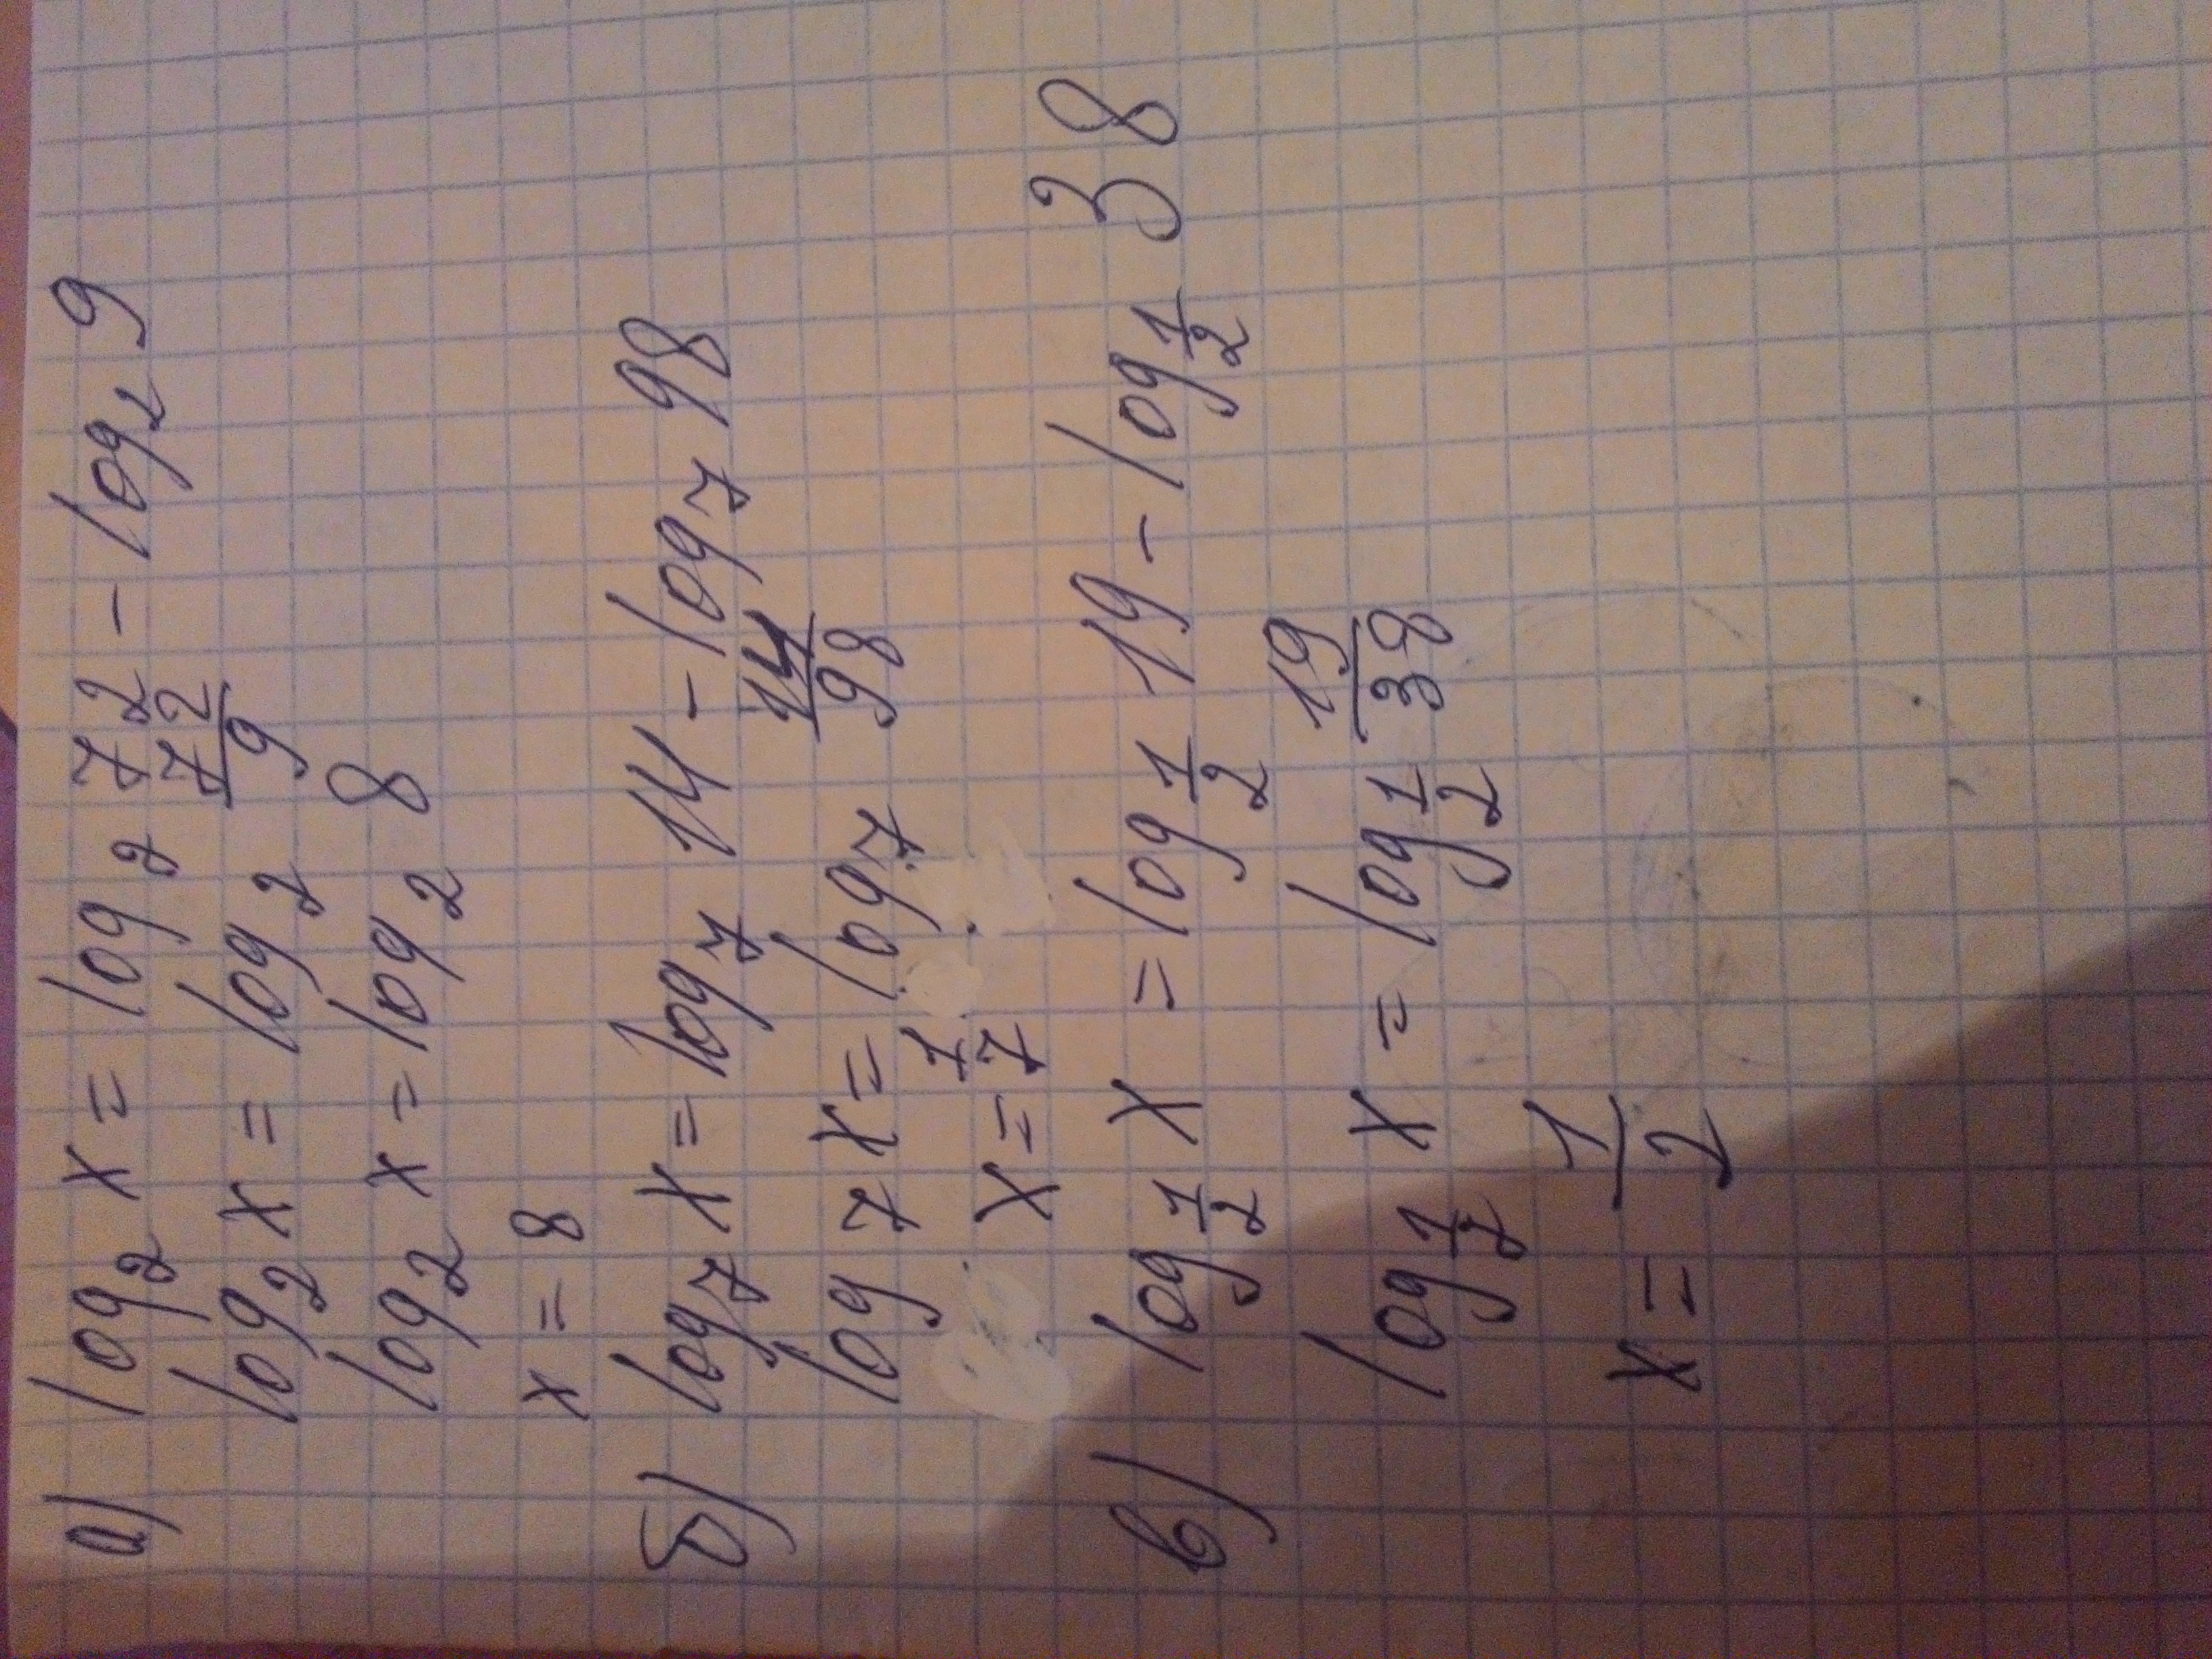 а) log₂ x = log₂ 72 - log₂ 9
log₂ x = log₂ 72/9
log₂ x = log₂ 8
x = 8
б) log₇ x = log₇ 14 - log₇ 98
log₇ x = log₇ 14/98
x = 1/7
в) log_{1/2} x = log_{1/2} 19 - log_{1/2} 38
log_{1/2} x = log_{1/2} 19/38
x = 1/2